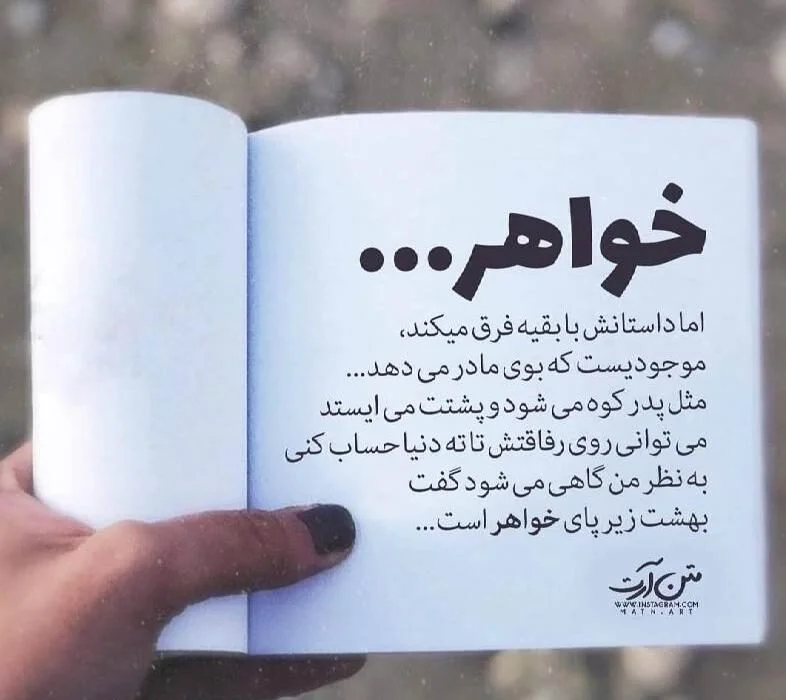 خواهر...
اما داستانش با بقیه فرق میکند،
موجودیست که بوی مادر می دهد...
مثل پدر کوه می شود و پشتت می ایستد
می توانی روی رفاقتش تا ته دنیا حساب کنی
به نظر من گاهی می شود گفت
بهشت زیر پای خواهر است...
متن آرت
WWW.INSTAGRAM.COM
MATN.ART